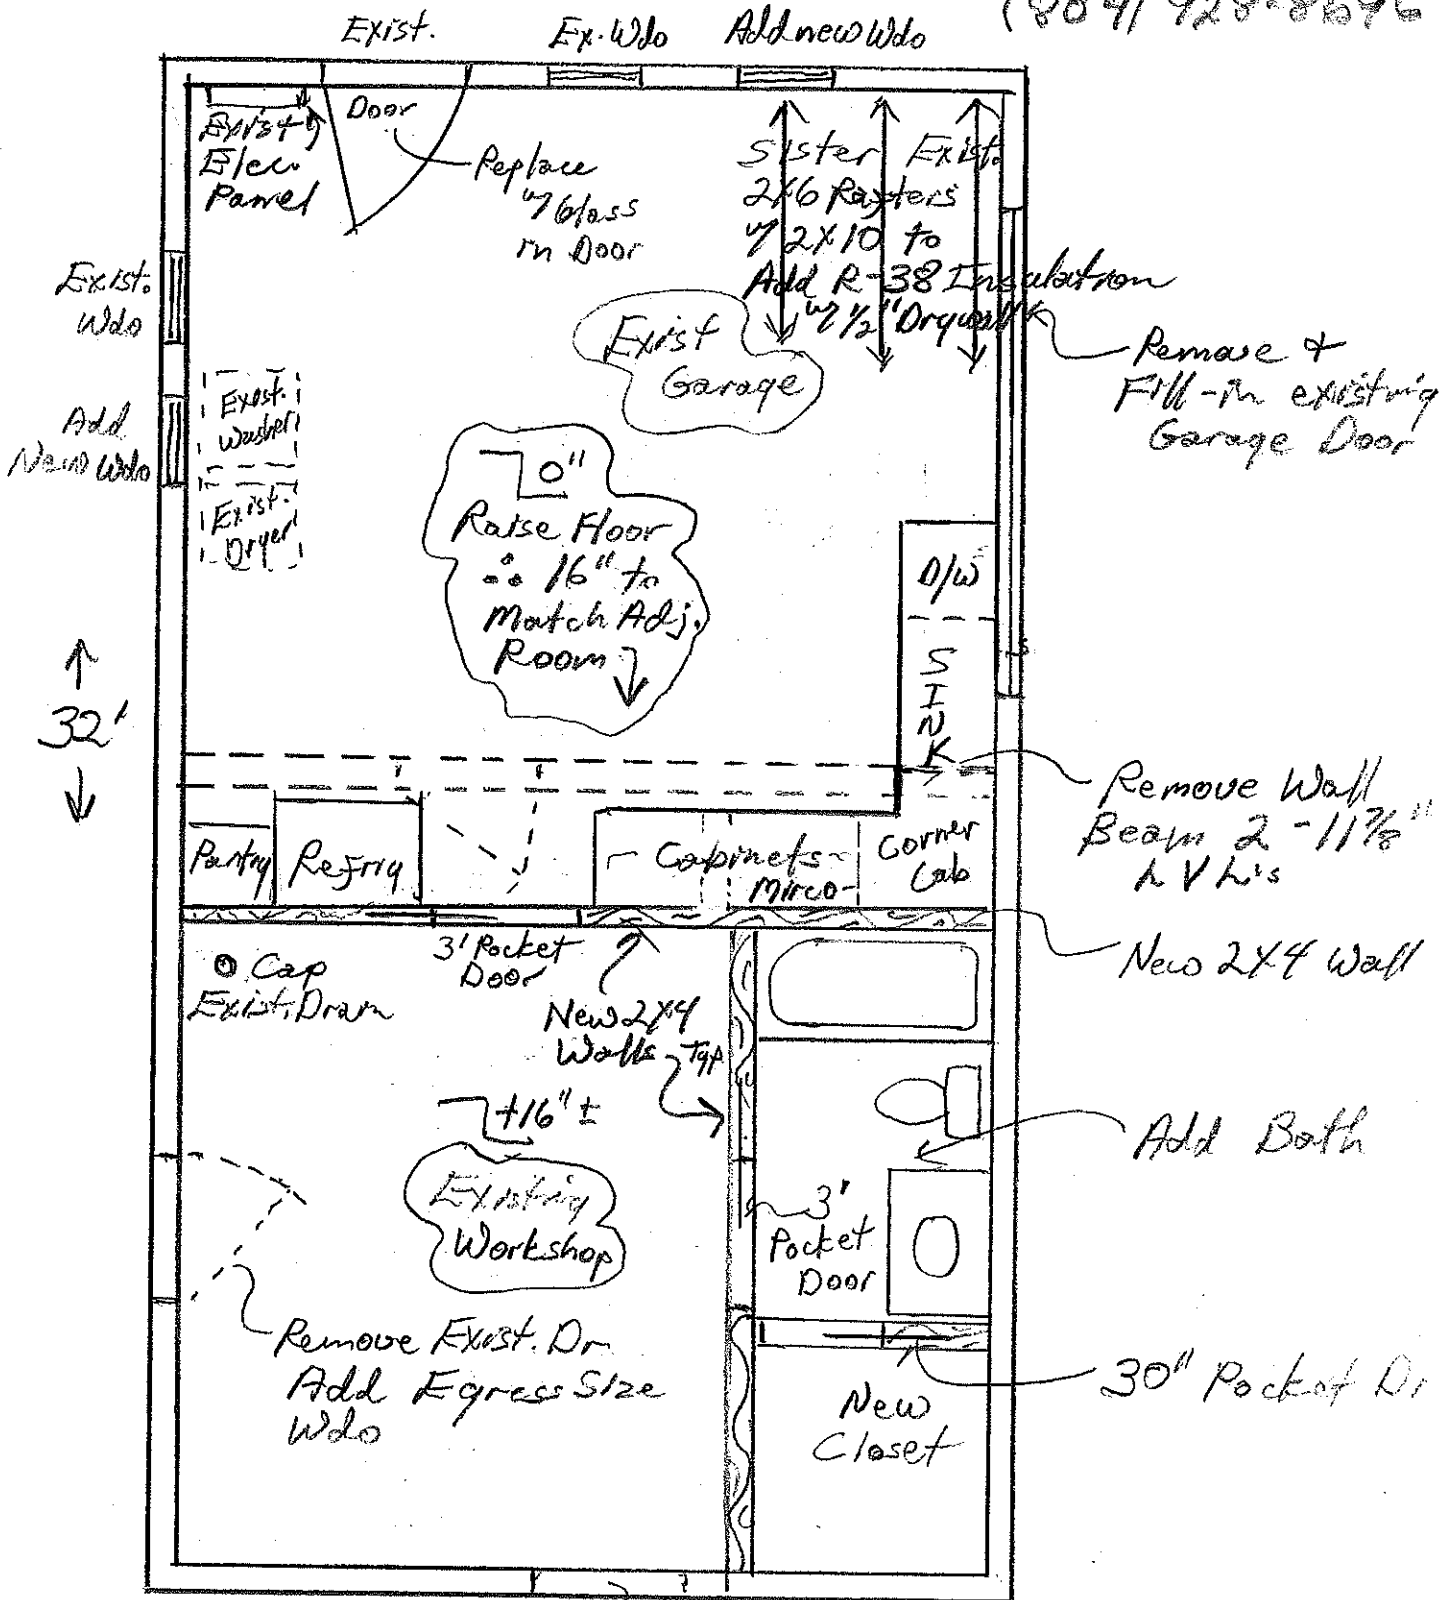 Exist.
Ex. Wdo
Add new Wdo
Door
Exist'g
Elec.
Pannel
Replace
w/ Glass
in Door
Sister Exist.
2x6 Rafters
w/ 2x10 to
Add R-38 Insulation
w/ 1/2" Drywall
Exist.
Wdo
Exist
Garage
Remove +
Fill-in existing
Garage Door
Add
New Wdo
Exist.
Washer
Exist.
Dryer
0"
Raise Floor
∴ 16" to
Match Adj.
Room
D/W
SINK
32'
Remove Wall
Beam 2 - 11 7/8"
LVL's
Pantry
Refrig
Cabinets
Mirco
Corner
Cab
New 2x4 Wall
3' Pocket
Door
Cap
Exist. Drain
New 2x4
Walls Typ
+16" ±
Existing
Workshop
Add Bath
3'
Pocket
Door
Remove Exist. Dr
Add Egress Size
Wdo
30" Pocket Dr
New
Closet